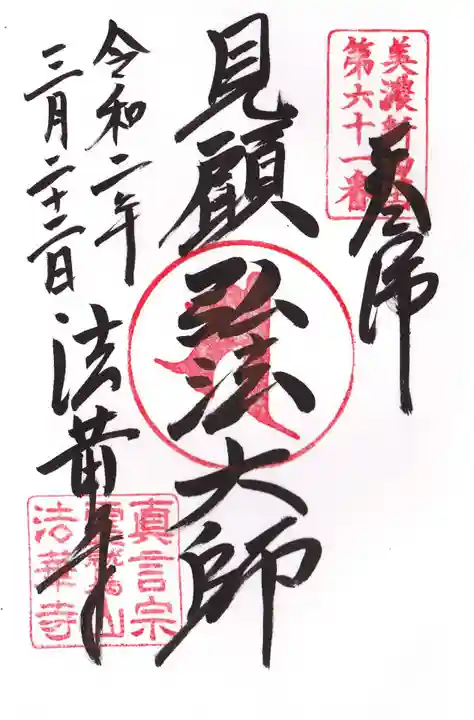 美濃新四国
第六十一番
奉拝
見顧弘法大師
令和二年
三月二十二日
法華寺
真言宗
法華寺